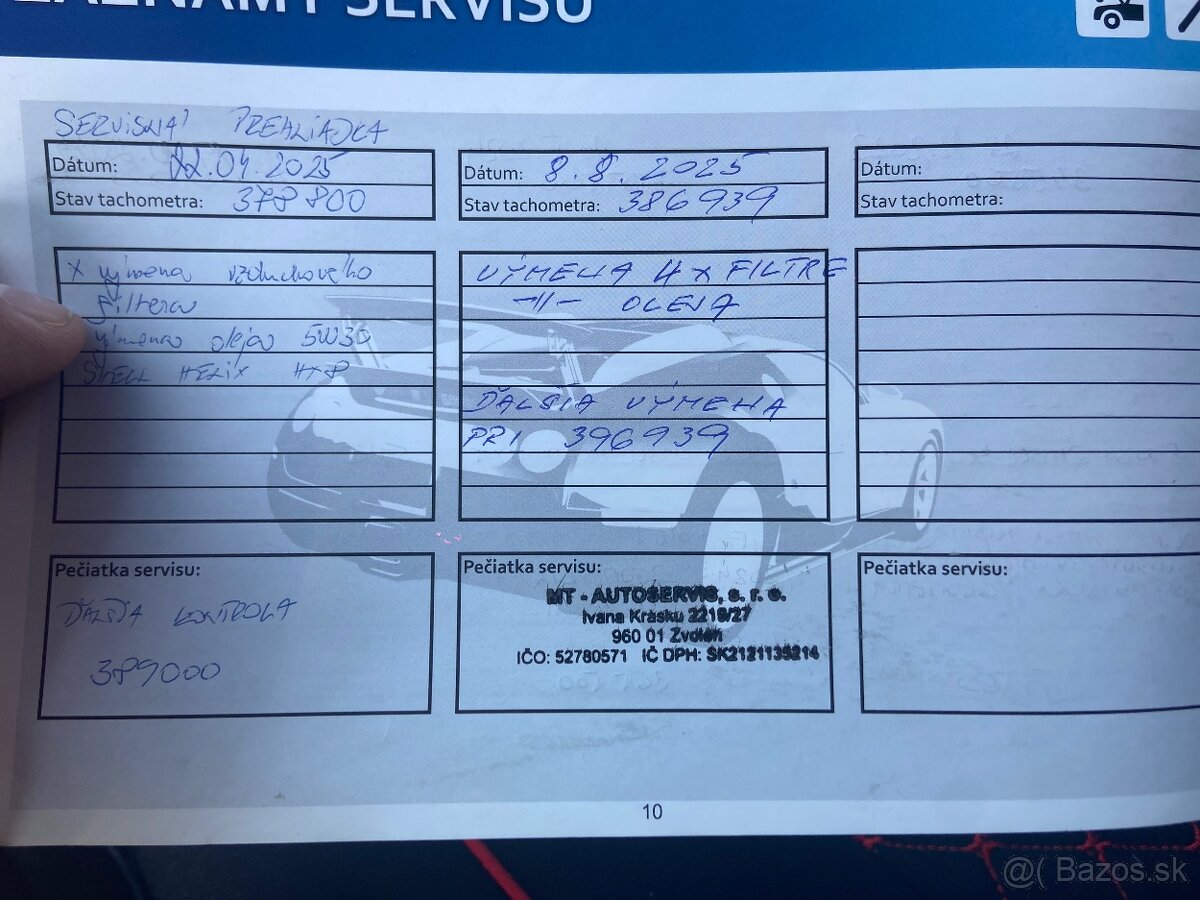 ZÁZNAMY SERVISU
SERVISNÁ PREHLIADKA
Dátum: 22.04.2025
Stav tachometra: 378 800
x výmena vzduchového
filtera
výmena oleja 5W30
SHELL HELIX HX8
Pečiatka servisu:
ĎALŠIA KONTROLA
389000
Dátum: 8.8.2025
Stav tachometra: 386939
VÝMENA 4x FILTRE
-//- OLEJA
ĎALŠIA VÝMENA
PRI 396939
Pečiatka servisu:
MT - AUTOSERVIS, s. r. o.
Ivana Krasku 2218/27
960 01 Zvolen
IČO: 52780571 IČ DPH: SK2121135214
Dátum:
Stav tachometra:
Pečiatka servisu:
10
@( Bazos.sk